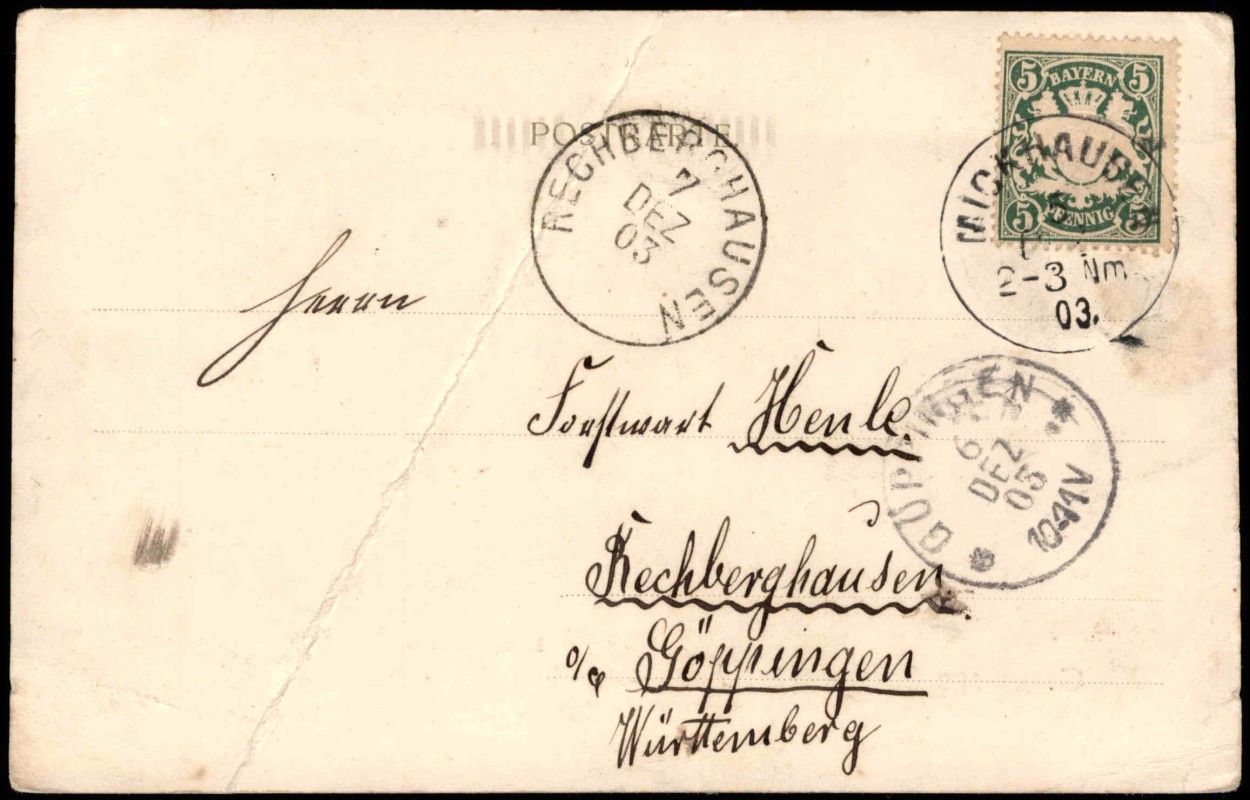 POSTKARTE
5 5
BAYERN
PFENNIG
5 5
MICKHAUSEN
5
2-3 Nm
03.
RECHBERGHAUSEN
7
DEZ
03
Herrn
Forstwart Henle.
GÖPPINGEN
6
DEZ
03
10-11V
Rechberghausen
o/a Göppingen
Württemberg